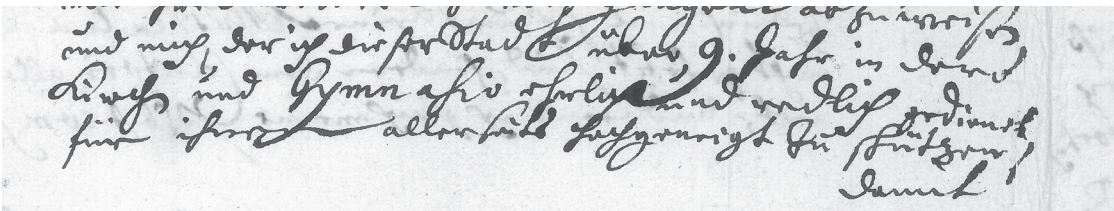 abzuweisen
und mich, der ich dieser Stadt über 9. Jahr in dero
Kirch und Gymnasio ehrlich und redlich gedienet
für ihnen allerseits hochgeneigt zu schützen,
damit